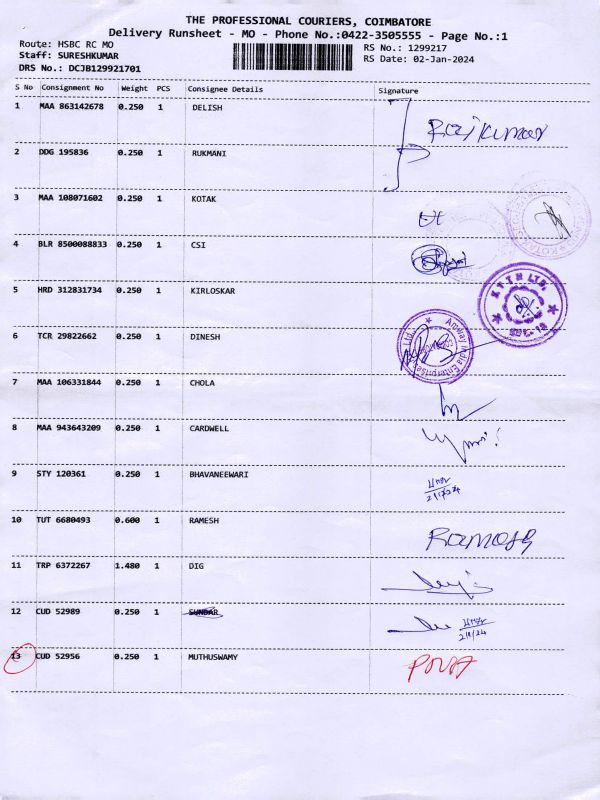 THE PROFESSIONAL COURIERS, COIMBATORE
Delivery Runsheet - MO - Phone No.:0422-3505555 - Page No.:1
Route: HSBC RC MO RS No.: 1299217
Staff: SURESHKUMAR RS Date: 02-Jan-2024
DRS No.: DCJB129921701
S No Consignment No Weight PCS Consignee Details Signature
1 MAA 863142678 0.250 1 DELISH
Rajkumar
2 DDG 195836 0.250 1 RUKMANI
3 MAA 108071602 0.250 1 KOTAK
4 BLR 8500088833 0.250 1 CSI
5 HRD 312831734 0.250 1 KIRLOSKAR
6 TCR 29822662 0.250 1 DINESH
Amway India Enterprises
7 MAA 106331844 0.250 1 CHOLA
8 MAA 943643209 0.250 1 CARDWELL
9 STY 120361 0.250 1 BHAVANEEWARI
10 TUT 6680493 0.600 1 RAMESH
Ramesh
11 TRP 6372267 1.480 1 DIG
12 CUD 52989 0.250 1 SUNDAR
2/1/24
13 CUD 52956 0.250 1 MUTHUSWAMY